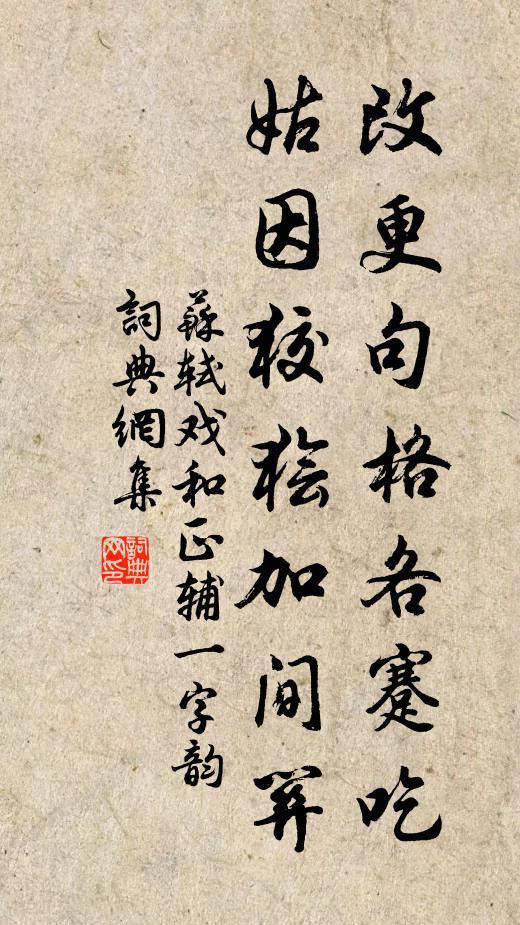 改更句格各蹇吃
姑因狡獪加间關
蘇軾戏和正輔一字韵
詞典網集
詞典网印